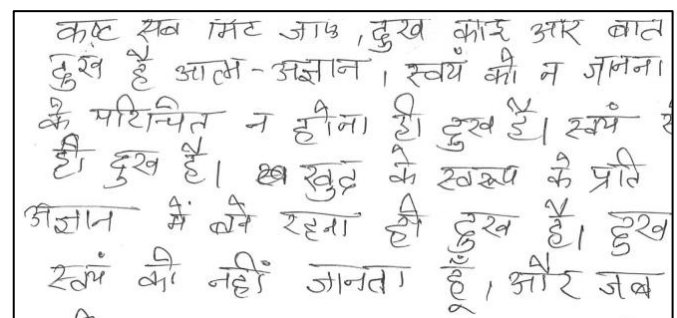 कष्ट सब मिट जाए, दुख कोई और बात
दुख है आत्म-अज्ञान, स्वयं को न जानना
के परिचित न होना ही दुख है। स्वयं
ही दुख है। खुद के स्वरूप के प्रति
अज्ञान में बने रहना ही दुख है। दुख
स्वयं को नहीं जानता हूँ, और जब